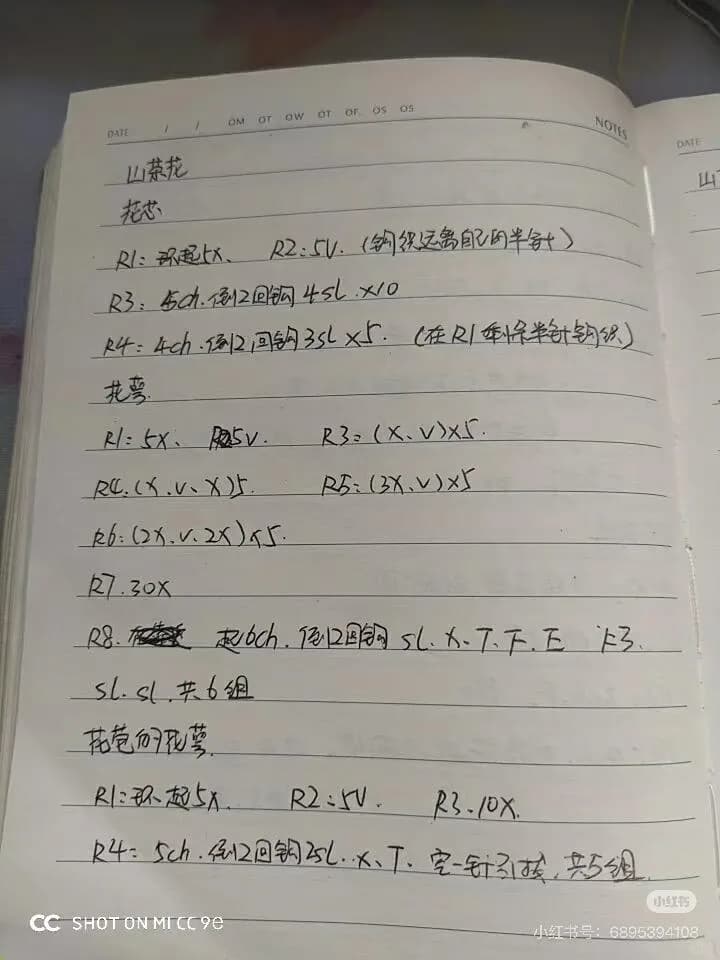 DATE / / OM OT OW OT OF OS OS
NOTES
DATE
山茶花
花芯
R1: 环起5X、 R2:5V. (钩织远离自己的半针)
R3: 5ch.倒2回钩4sl.×10
R4: 4ch.倒2,回钩3sl×5. (在R1剩余半针钩织)
花萼
R1:5X、 R25V. R3=(X、V)×5.
R4.(X.V、X)5. R5:(3X、V)×5
R6:(2X.V.2X)×5.
R7.30X
R8. 起6ch.倒2回钩 sl.X、T、F.E 卡3.
sl.sl.共6组
花苞的花萼.
R1:环起5X. R2=5V. R3.10X.
R4= 5ch.倒2回钩2sl..X、T、空一针引拔.共5组.
CC SHOT ON MI CC 9e
小红书
小红书号: 6895394108